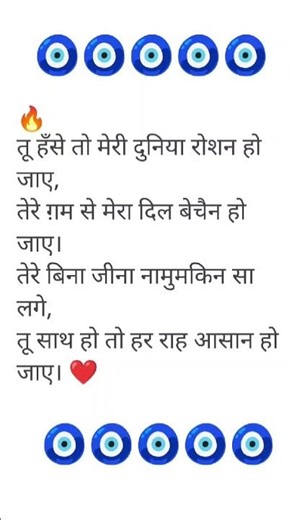 🧿🧿🧿🧿🧿
🔥
तू हँसे तो मेरी दुनिया रोशन हो
जाए,
तेरे ग़म से मेरा दिल बेचैन हो
जाए।
तेरे बिना जीना नामुमकिन सा
लगे,
तू साथ हो तो हर राह आसान हो
जाए। ❤️
🧿🧿🧿🧿🧿